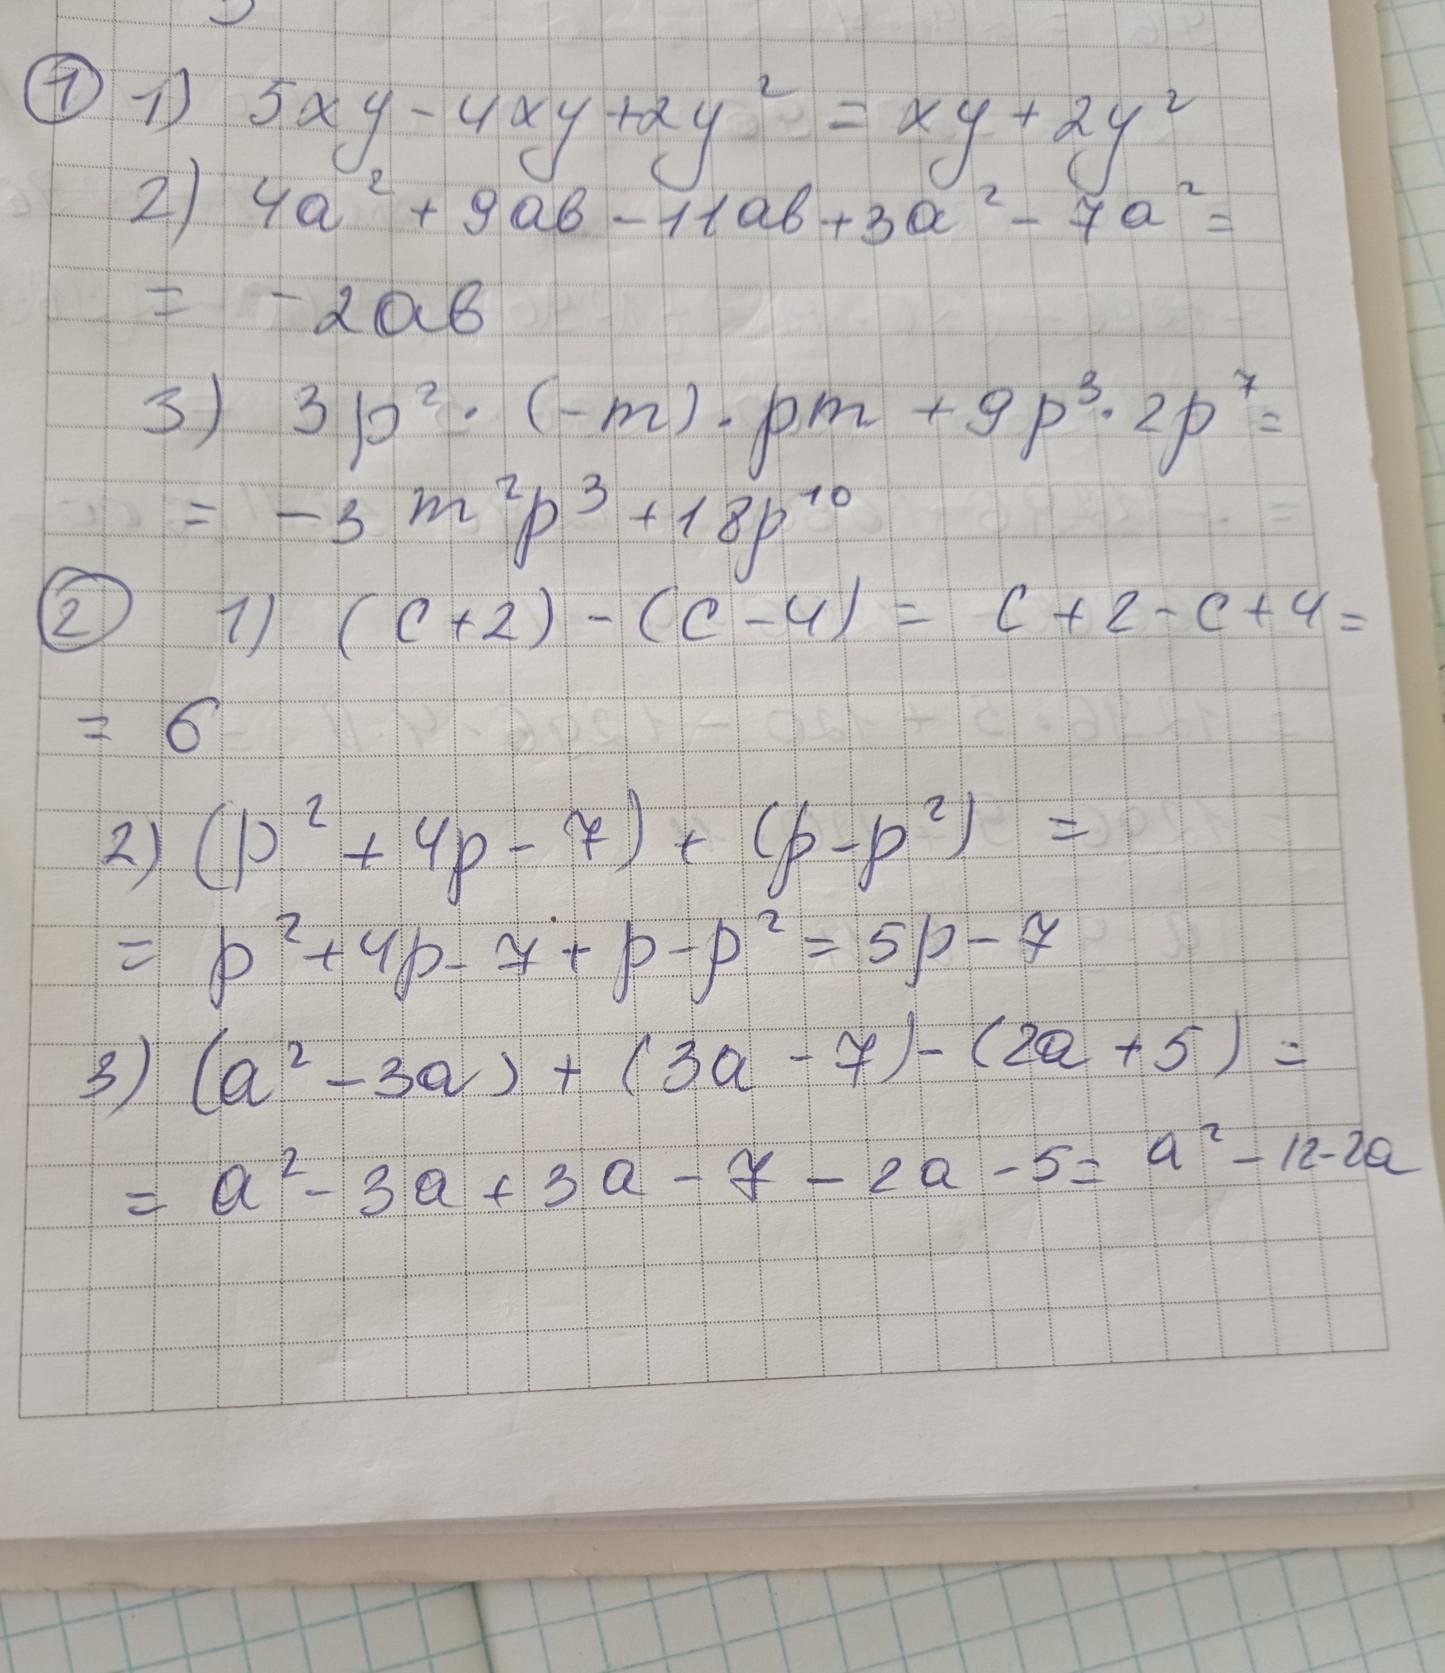 ① 1) 5xy - 4xy + 2y² = xy + 2y²
2) 4a² + 9ab - 11ab + 3a² - 7a² =
= -2ab
3) 3p² · (-m) · pm + 9p³ · 2p⁷ =
= -3 m²p³ + 18p¹⁰
② 1) (c + 2) - (c - 4) = c + 2 - c + 4 =
= 6
2) (p² + 4p - 7) + (p - p²) =
= p² + 4p - 7 + p - p² = 5p - 7
3) (a² - 3a) + (3a - 7) - (2a + 5) =
= a² - 3a + 3a - 7 - 2a - 5 = a² - 12 - 2a